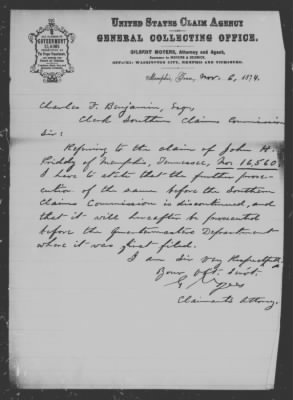 UNITED STATES CLAIM AGENCY
AND
GENERAL COLLECTING OFFICE.
GILBERT MOYERS, Attorney and Agent,
Successor to MOYERS & DEDRICK,
OFFICES: WASHINGTON CITY, MEMPHIS AND VICKSBURG.
GOVERNMENT
CLAIMS
Memphis, Tenn, Nov. 6, 1874.
Charles F. Benjamin, Esqr
Clerk Southern Claims Commission
Sir:
Referring to the claim of John H.
Priddy of Memphis, Tennessee, No. 16,560.
I have to state that the further prose-
cution of the same before the Southern
Claims Commission is discontinued, and
that it will hereafter be prosecuted
before the Quartermasters Department
where it was first filed.
I am Sir Very Respectfully
Your Obt. Servt.
G Moyers
Claimants Attorney.